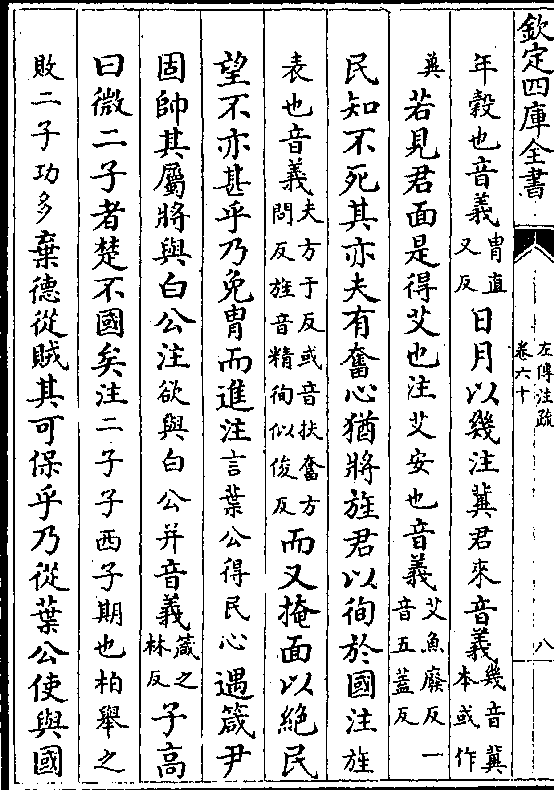 欽定四庫全書
左傳注疏
卷六十
八
年穀也音義胄直又反日月以幾注冀君來音義幾音冀本或作
冀若見君面是得艾也注艾安也音義艾魚廢反一音五蓋反
民知不死其亦夫有奮心猶將旌君以徇於國注旌
表也音義夫方于反或音扶奮方問反旌音精徇似俊反而又掩面以絶民
望不亦甚乎乃免胄而進注言葉公得民心遇箴尹
固帥其屬將與白公注欲與白公并音義箴之林反子高
曰微二子者楚不國矣注二子子西子期也柏舉之
敗二子功多棄德從賊其可保乎乃從葉公使與國